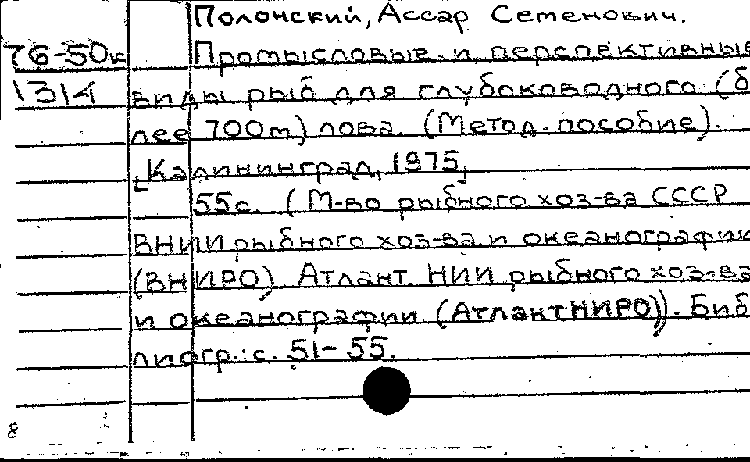 Полонский, Ассар Семенович.
76-50к Промысловые и перспективные
1314 виды рыб для глубоководного (б
лее 700m) лова. (Метод. пособие).
[Калининград, 1975]
55с. (М-во рыбного хоз-ва СССР
ВНИИ рыбного хоз-ва и океанографи
(ВНИРО) Атлант. НИИ рыбного хоз-ва
и океанографии (АтлантНИРО)). Биб
лиогр.: с. 51-55.
8